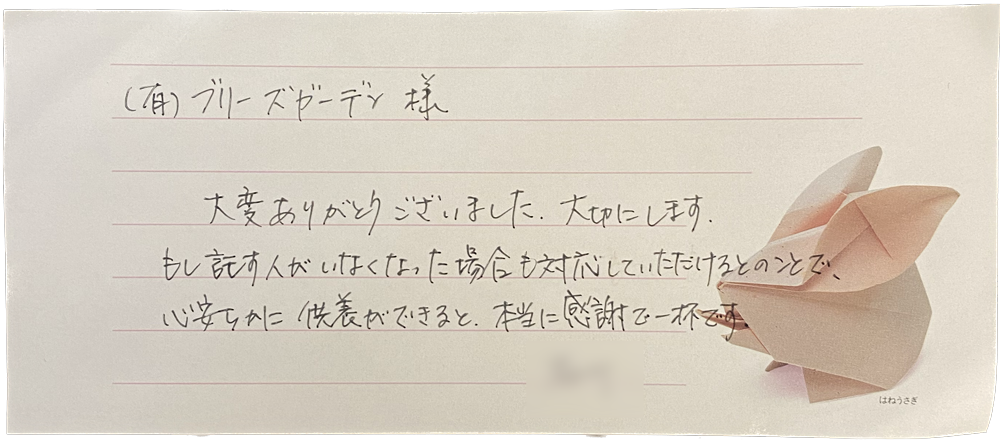 (有)ブリーズガーデン 様
大変ありがとうございました. 大切にします.
もし託す人がいなくなった場合も対応していただけるとのことで、
心安らかに供養ができると、本当に感謝で一杯です.
はねうさぎ